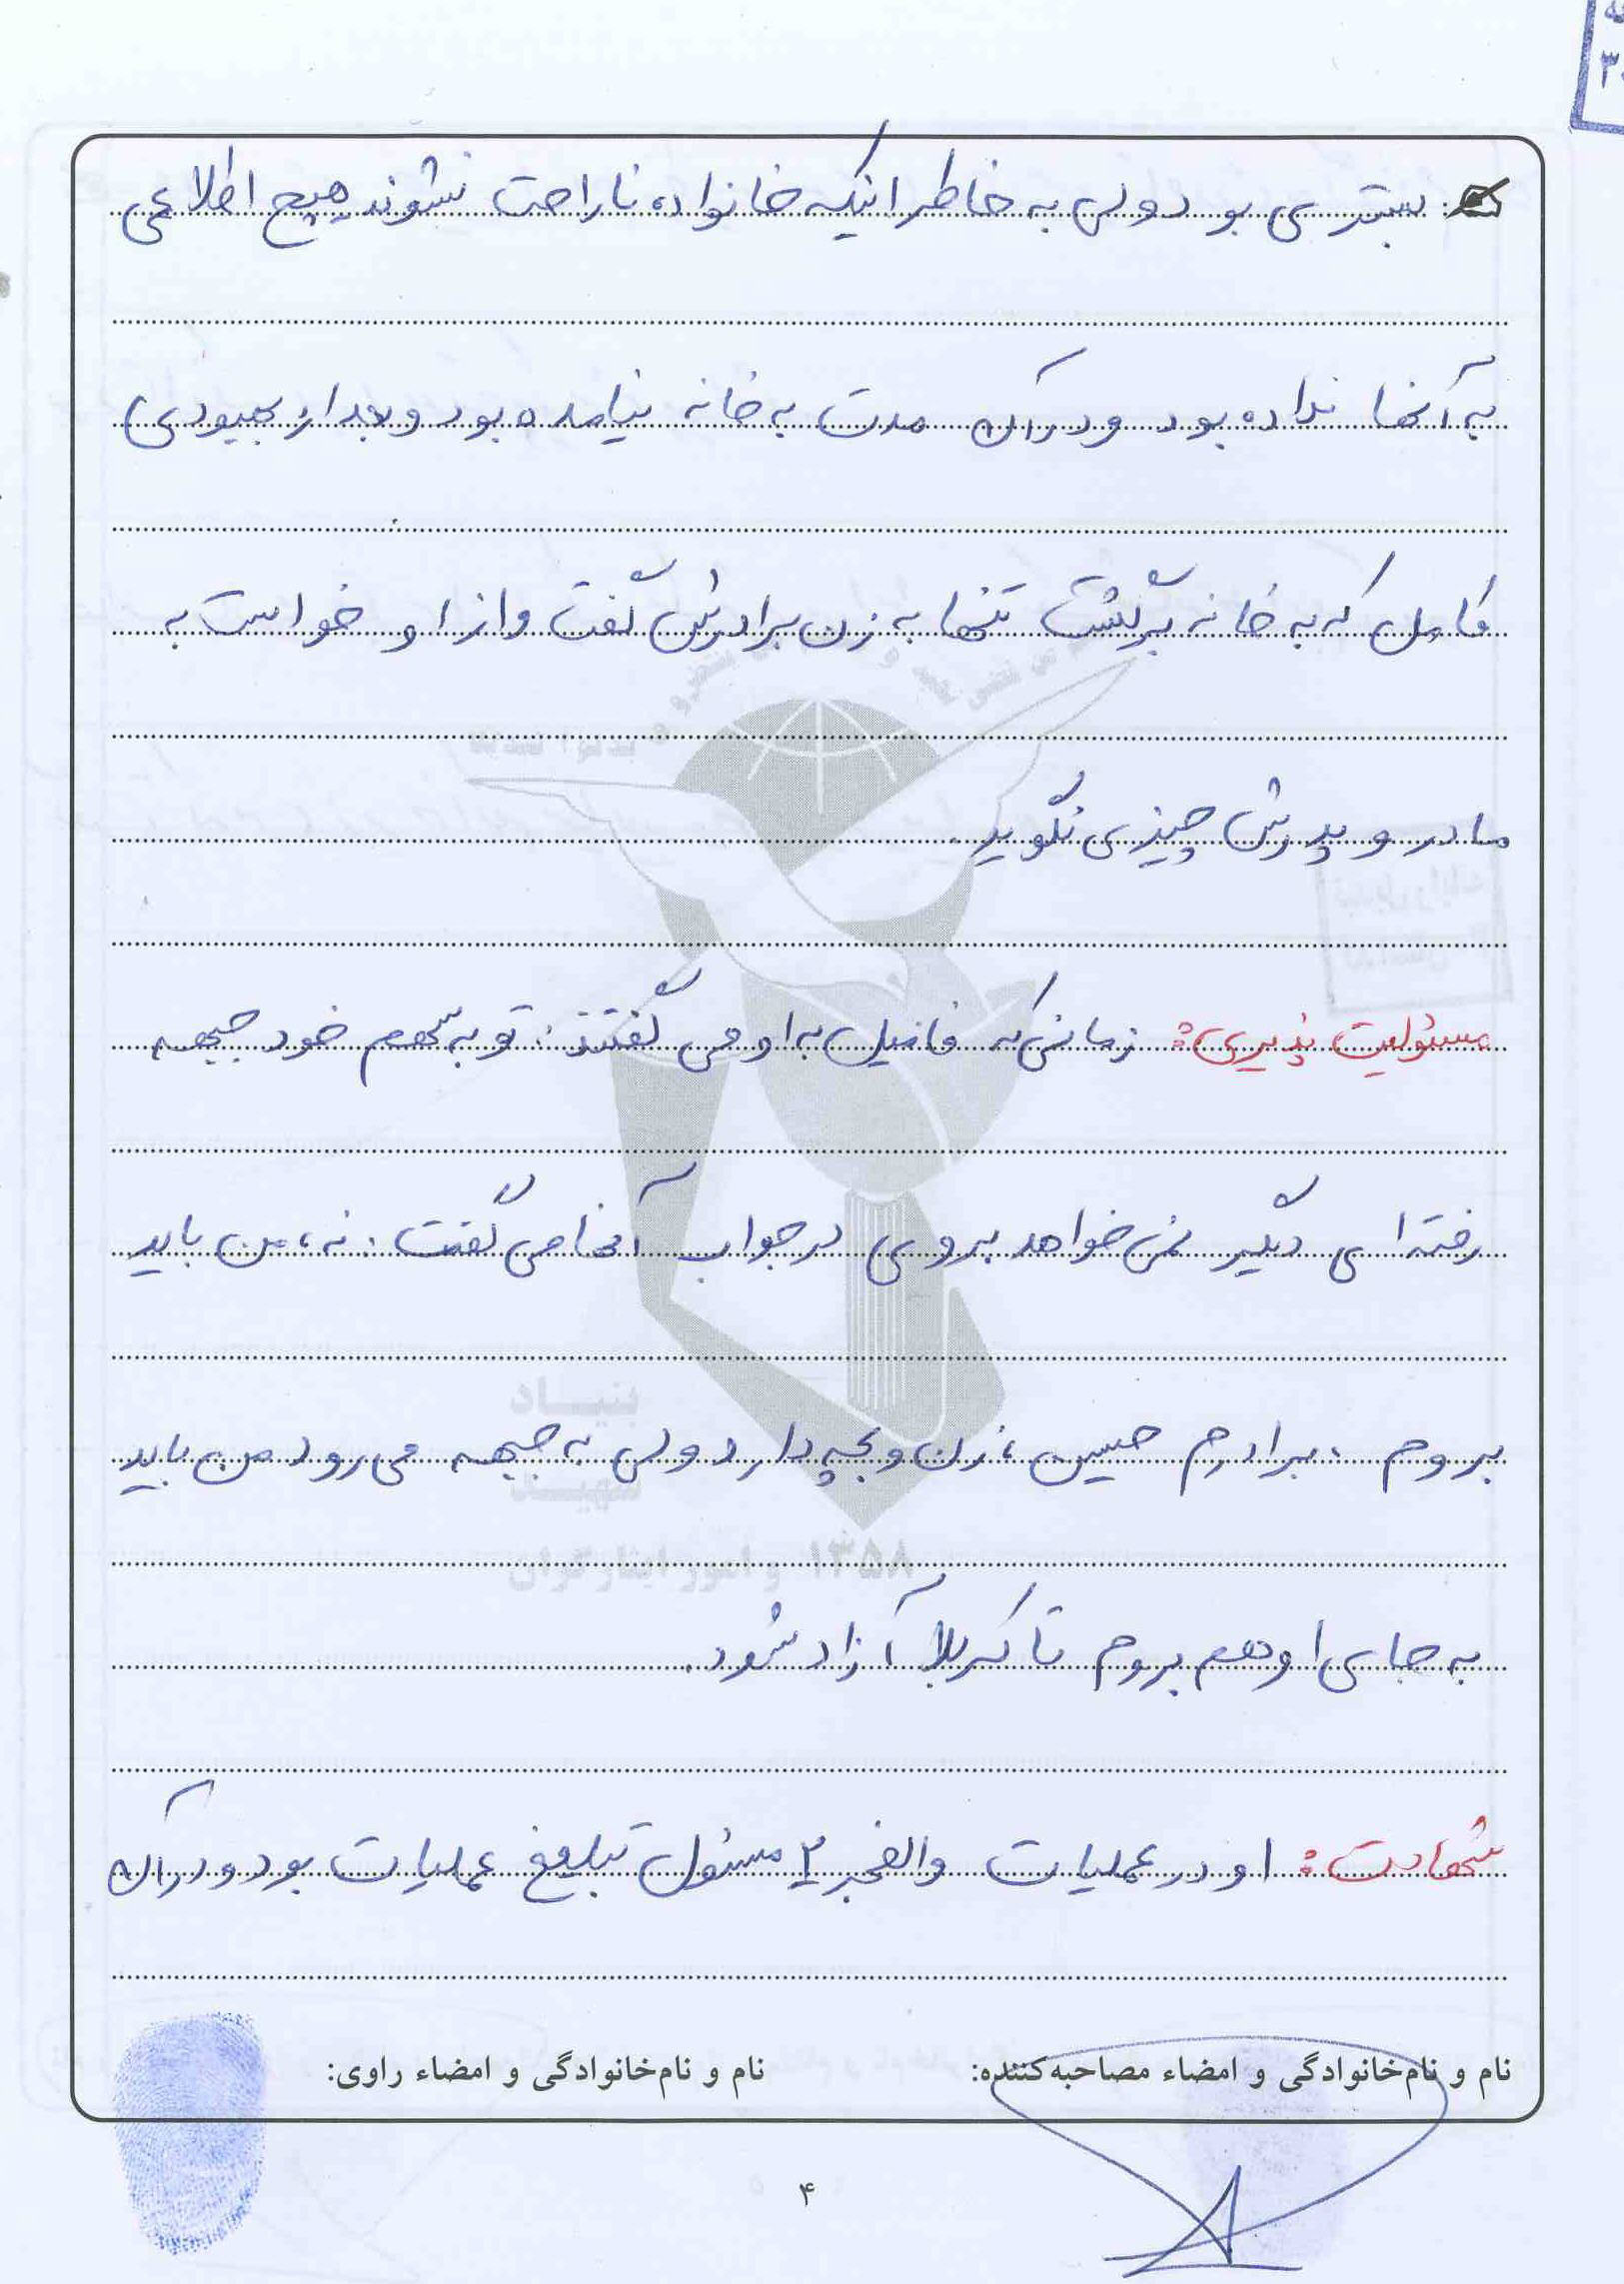 بستری بود ولی به خاطر اینکه خانواده ناراحت نشوند هیچ اطلاعی
به آنها نداده بود و در آن مدت به خانه نیامده بود و بعد از بهبودی
کامل که به خانه برگشت تنها به زن برادرش گفت و از او خواست به
مادر و پدرش چیزی نگوید.
مسئولیت پذیری: زمانی که فامیل به او می گفتند: تو به سهم خود جبهه
رفته ای دیگر نمی خواهد بروی در جواب آنها می گفت: نه، من باید
بروم، برادرم حسین، زن و بچه دارد ولی به جبهه می رود من باید
به جای او هم بروم تا کربلا آزاد شود.
شهادت: او در عملیات والفجر ۲ مسئول تبلیغ عملیات بود و در آن
نام و نام‌خانوادگی و امضاء مصاحبه‌کننده: نام و نام‌خانوادگی و امضاء راوی:
۴
بنیاد
شهید
۱۳۵۸ و امور ایثارگران